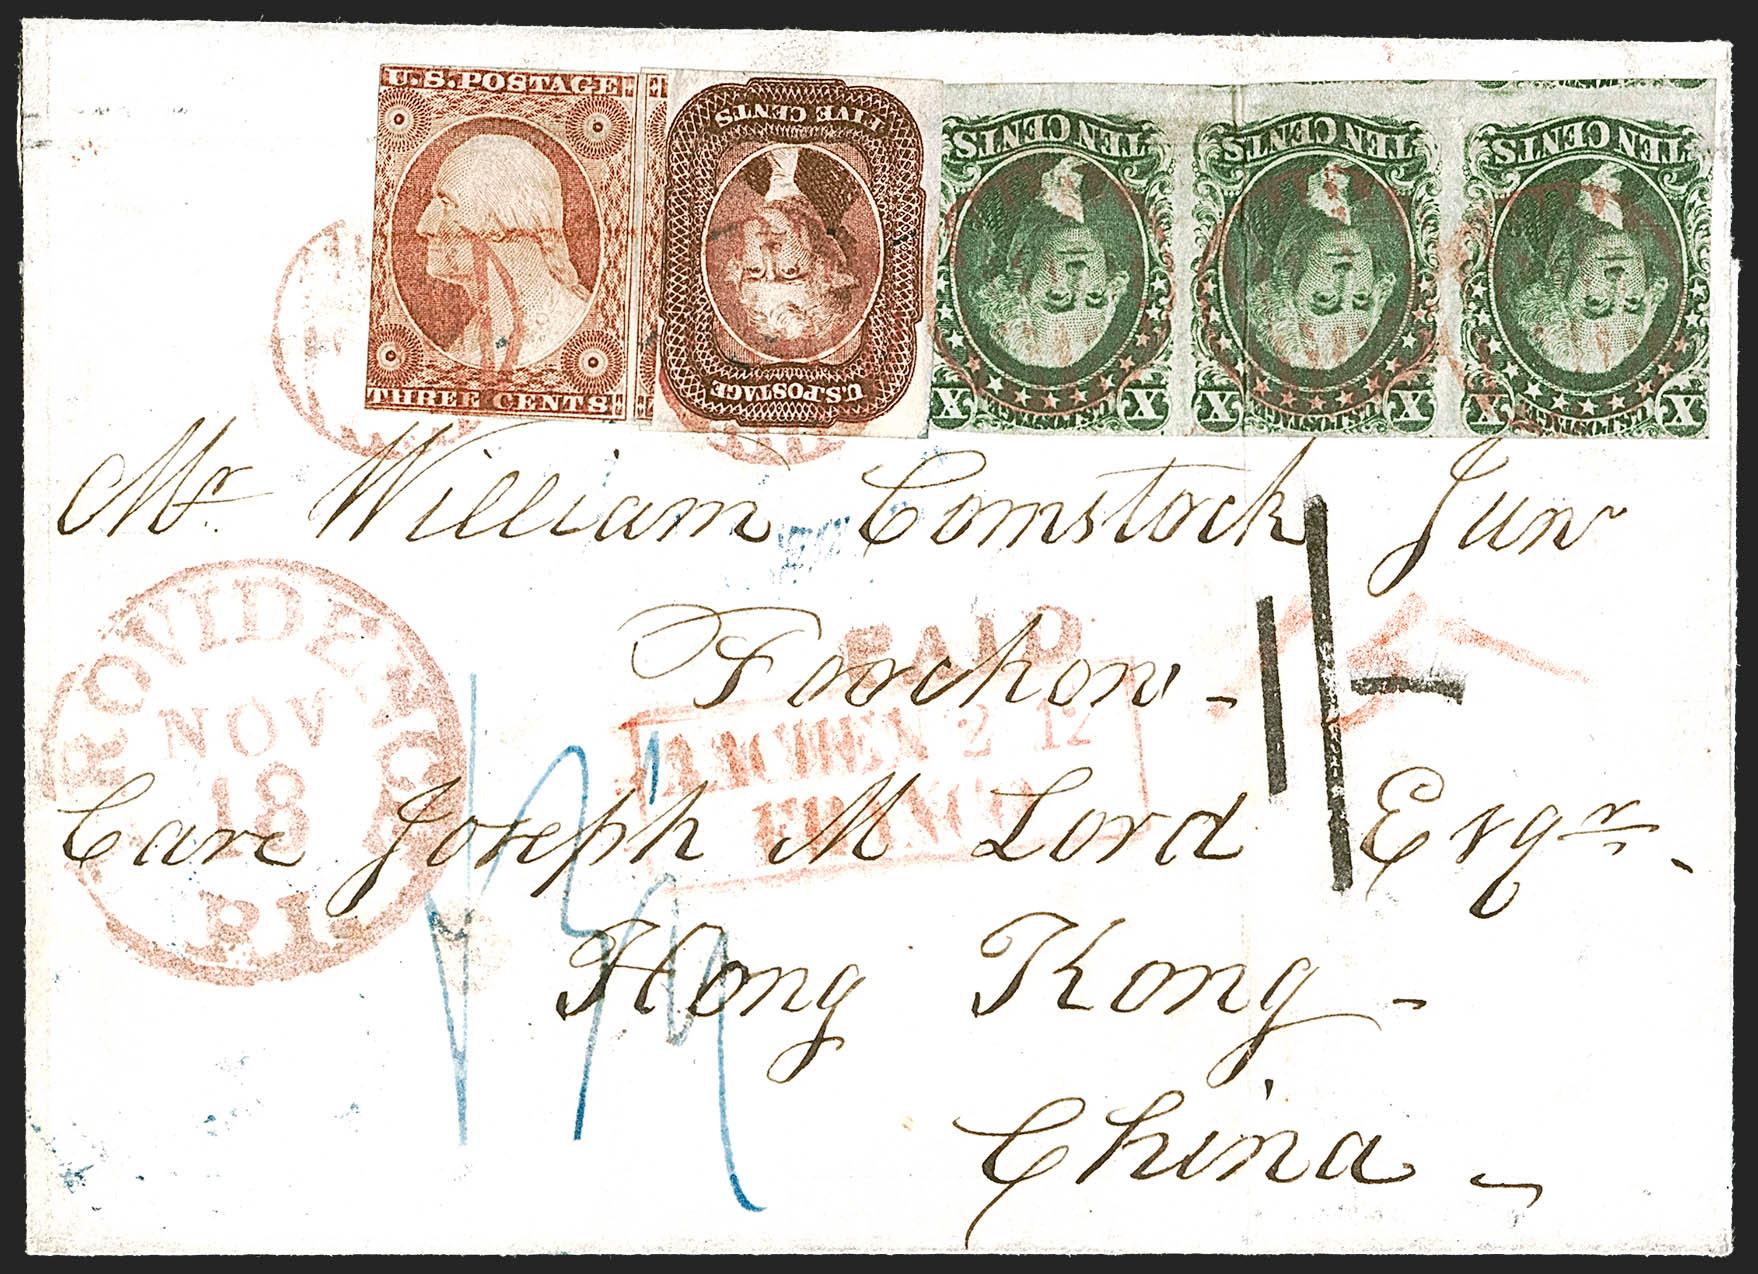 U.S. POSTAGE
THREE CENTS
FIVE CENTS
U.S. POSTAGE
TEN CENTS
U.S. POSTAGE
X X
TEN CENTS
U.S. POSTAGE
X X
TEN CENTS
U.S. POSTAGE
X X
Mr. William Comstock Junr
PAID
Foochow -
PROVIDENCE
NOV
18
R I
AACHEN 2 12
FRANCO
Care Joseph M Lord Esqr. -
Hong Kong -
China -